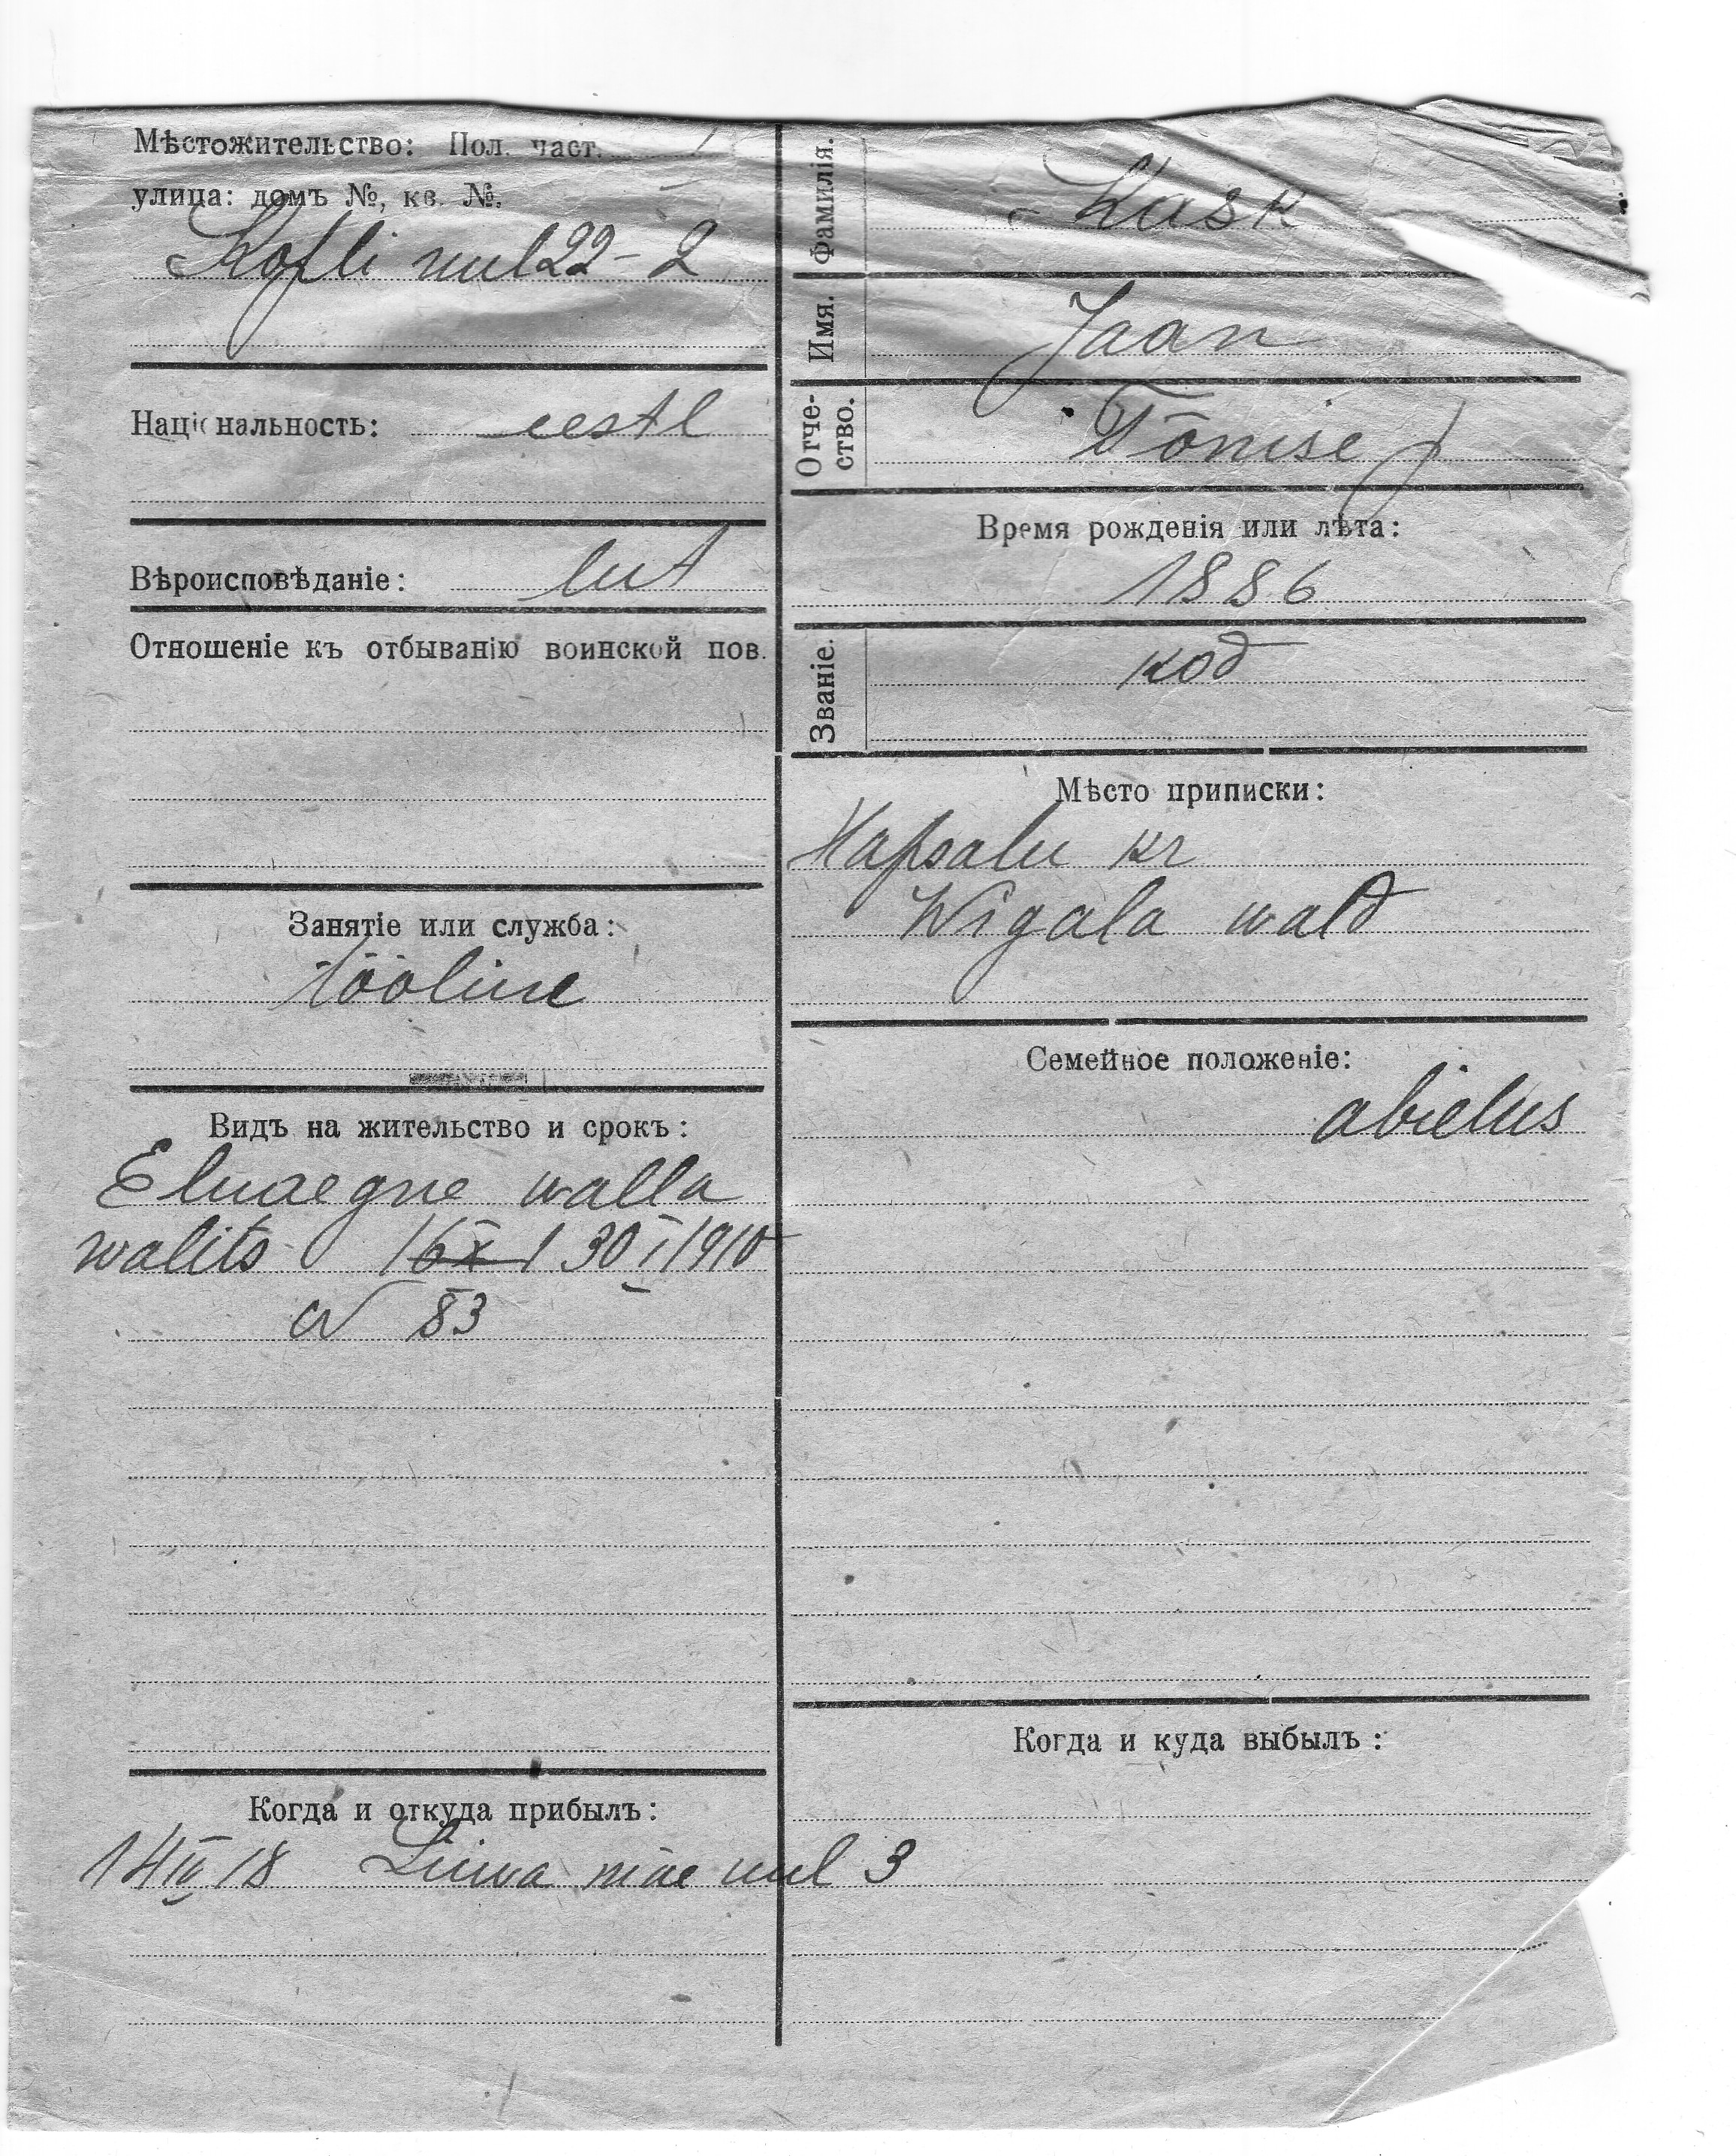 Мѣстожительство: Пол. част.
улица: домъ №, кв. №.
Kopli uul 22-2
Націнальность: eestl
Вѣроисповѣданіе: lut
Отношеніе къ отбыванію воинской пов.
Занятіе или служба:
tööline
Видъ на жительство и срокъ:
Eluaegne walla
walits 30 I 1910
N 83
Когда и откуда прибылъ:
14 IV 18 Liiwa mäe uul 3
Фамилія. Kask
Имя. Jaan
Отчество. Tõnise p
Время рожденія или лѣта:
1886
Званіе. kod
Мѣсто приписки:
Hapsalu kr
Wigala wald
Семейное положеніе:
abielus
Когда и куда выбылъ: